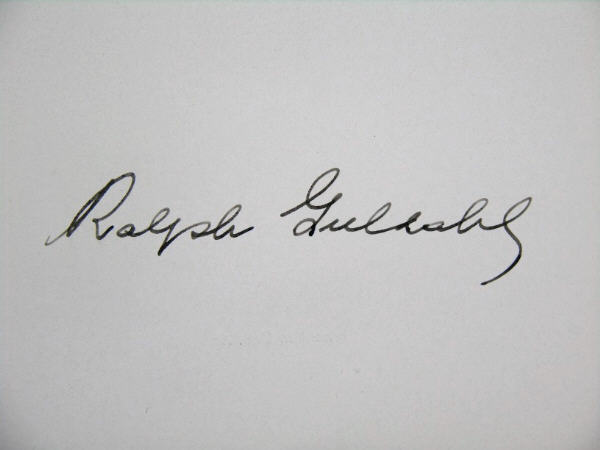 Ralph Guldahl